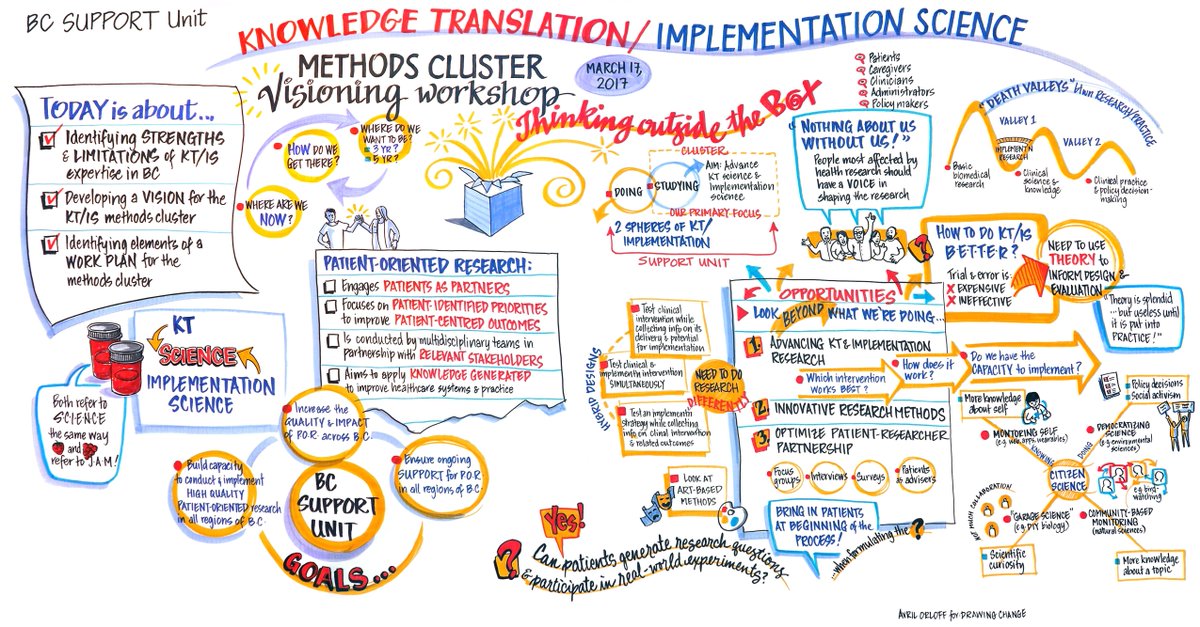 BC SUPPORT Unit
KNOWLEDGE TRANSLATION/IMPLEMENTATION SCIENCE
METHODS CLUSTER
Visioning workshop
MARCH 17,
2017
TODAY is about...
Identifying STRENGTHS
& LIMITATIONS of KT/IS
expertise in BC
Developing a VISION for the
KT/IS methods cluster
Identifying elements of a
WORK PLAN for the
methods cluster
WHERE ARE WE
NOW?
HOW DO WE
GET THERE?
WHERE DO WE
WANT TO BE?
3 YR?
5 YR?
PATIENT-ORIENTED RESEARCH:
Engages PATIENTS AS PARTNERS
Focuses on PATIENT-IDENTIFIED PRIORITIES
to improve PATIENT-CENTRED OUTCOMES
Is conducted by multidisciplinary teams in
partnership with RELEVANT STAKEHOLDERS
Aims to apply KNOWLEDGE GENERATED
to improve healthcare systems & practice
KT
SCIENCE
IMPLEMENTATION
SCIENCE
Both refer to
SCIENCE
the same way
and
refer to JAM!
Increase the
QUALITY & IMPACT
of P.O.R. across B.C.
Build capacity
to conduct & implement
HIGH QUALITY
PATIENT-oriented research
in all regions of B.C.
Ensure ongoing
SUPPORT for P.O.R.
in all regions of B.C.
BC
SUPPORT
UNIT
GOALS...
Thinking outside the Box
CLUSTER
DOING
STUDYING
Aim: Advance
KT science &
Implementation
science
OUR PRIMARY FOCUS
2 SPHERES OF KT/
IMPLEMENTATION
SUPPORT UNIT
Patients
Caregivers
Clinicians
Administrators
Policy makers
"NOTHING ABOUT US
WITHOUT US!"
People most affected by
health research should
have a VOICE in
shaping the research
"DEATH VALLEYS" btwn RESEARCH/PRACTICE
VALLEY 1
VALLEY 2
IMPLEMENT'N
RESEARCH
Basic
biomedical
research
Clinical
science &
knowledge
Clinical practice
& policy decision-
making
HOW TO DO KT/IS
B·E·T·T·E·R?
Trial & error is:
EXPENSIVE
INEFFECTIVE
NEED TO USE
THEORY to
INFORM DESIGN &
EVALUATION
"Theory is splendid
...but useless until
it is put into
PRACTICE!"
HYBRID DESIGNS
Test clinical
intervention while
collecting info on its
delivery & potential
for implementation
Test clinical &
implement'n intervention
SIMULTANEOUSLY
Test an implement'n
strategy while collecting
info on clinical intervention
& related outcomes
NEED TO DO
RESEARCH
DIFFERENTLY
LOOK AT
ART-BASED
METHODS
OPPORTUNITIES
LOOK BEYOND WHAT WE'RE DOING...
1. ADVANCING KT & IMPLEMENTATION
RESEARCH
Which intervention
works BEST?
How does it
work?
Do we have the
CAPACITY to implement?
2. INNOVATIVE RESEARCH METHODS
3. OPTIMIZE PATIENT-RESEARCHER
PARTNERSHIP
Focus
groups
Interviews
Surveys
Patients
as advisers
BRING IN PATIENTS
AT BEGINNING of the
PROCESS!
...when formulating the ?
Yes!
Can patients generate research questions
& participate in real-world experiments?
CITIZEN
SCIENCE
KNOWING
DOING
More knowledge
about self
MONITORING SELF
(e.g. web apps, wearables)
Policy decisions
Social activism
DEMOCRATIZING
SCIENCE
(e.g. environmental
sciences)
NOT MUCH COLLABORATION
"GARAGE SCIENCE"
(e.g. DIY biology)
Scientific
curiosity
e.g. bird-
watching
COMMUNITY-BASED
MONITORING
(natural sciences)
More knowledge
about a topic
AVRIL ORLOFF for DRAWING CHANGE